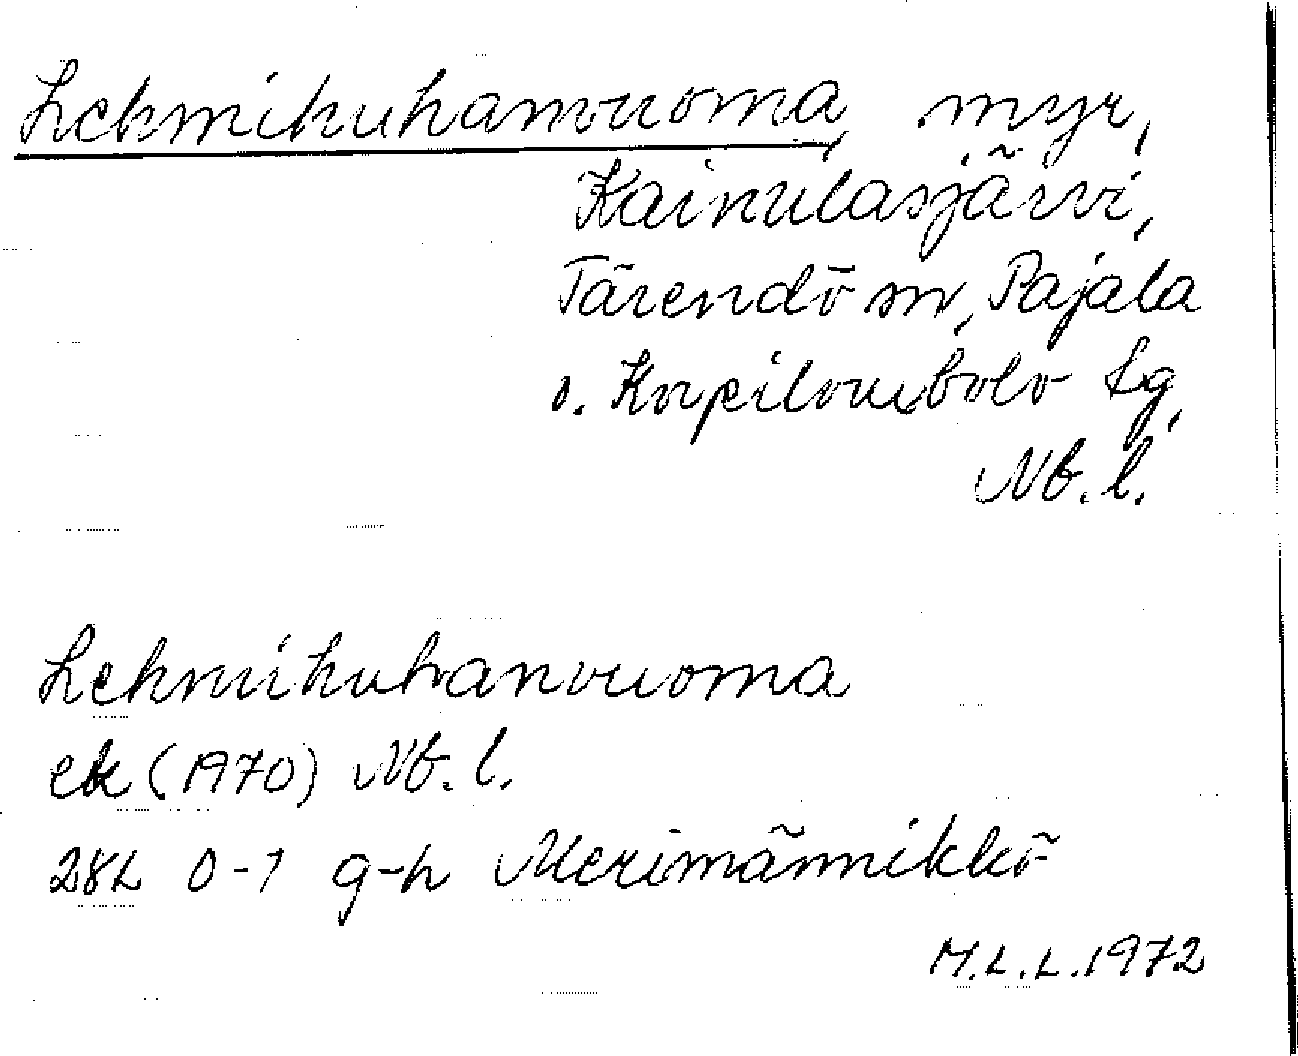 Lehmikuhanvuoma, myr,
Kainulasjärvi,
Tärendö sn, Pajala
o. Korpilombolo tg,
Nb. l.
Lehmikuhanvuoma
ek (1970) Nb. l.
28L 0-1 g-h Merimännikkö
M.L.L. 1972